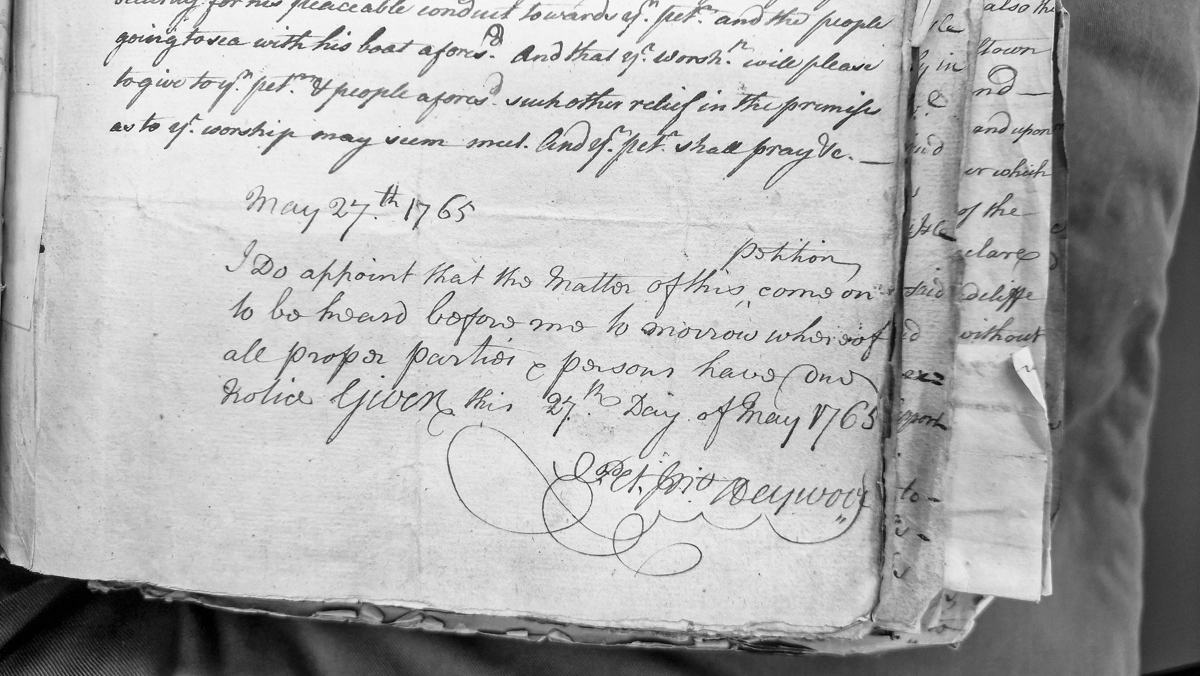 for his peaceable conduct towards yr. petr. and the people
going to sea with his boat aforesd. And that yr. worshp. will please
to give to yr. petnr. & people aforesd. such other relief in the premises
as to yr. worship may seem meet. And yr. petr. shall pray &c. —
May 27th. 1765
petition
I Do appoint that the Matter of this, come on
to be heard before me to morrow whereof
all proper parties & persons have due
Notice Given this 27th Day of May 1765
Pet. Jno. Heywood
also the
town
nd —
and upon
er which
of the
clare
said
dcliffe
without
to -